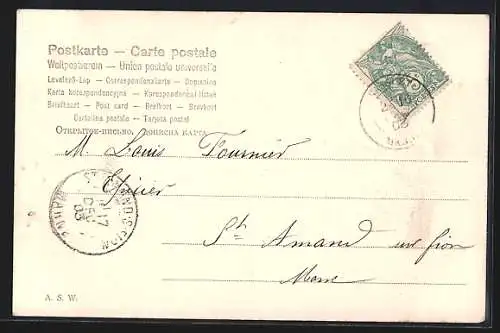 Postkarte — Carte postale
Weltpostverein — Union postale universelle
Levelező-Lap — Correspondenzkarte — Dopisnice
Karta korespondencyjna — Karespondenční lístek
Briefkaart — Post card — Brefkort — Brevkort
Cartolina postale — Tarjeta postal
ОТКРЫТОЕ-ПИСЬМО. ДОПИСНА КАРТА.
M. Louis Fournier
Epicier
St Amand sur fion
Marne
A. S. W.